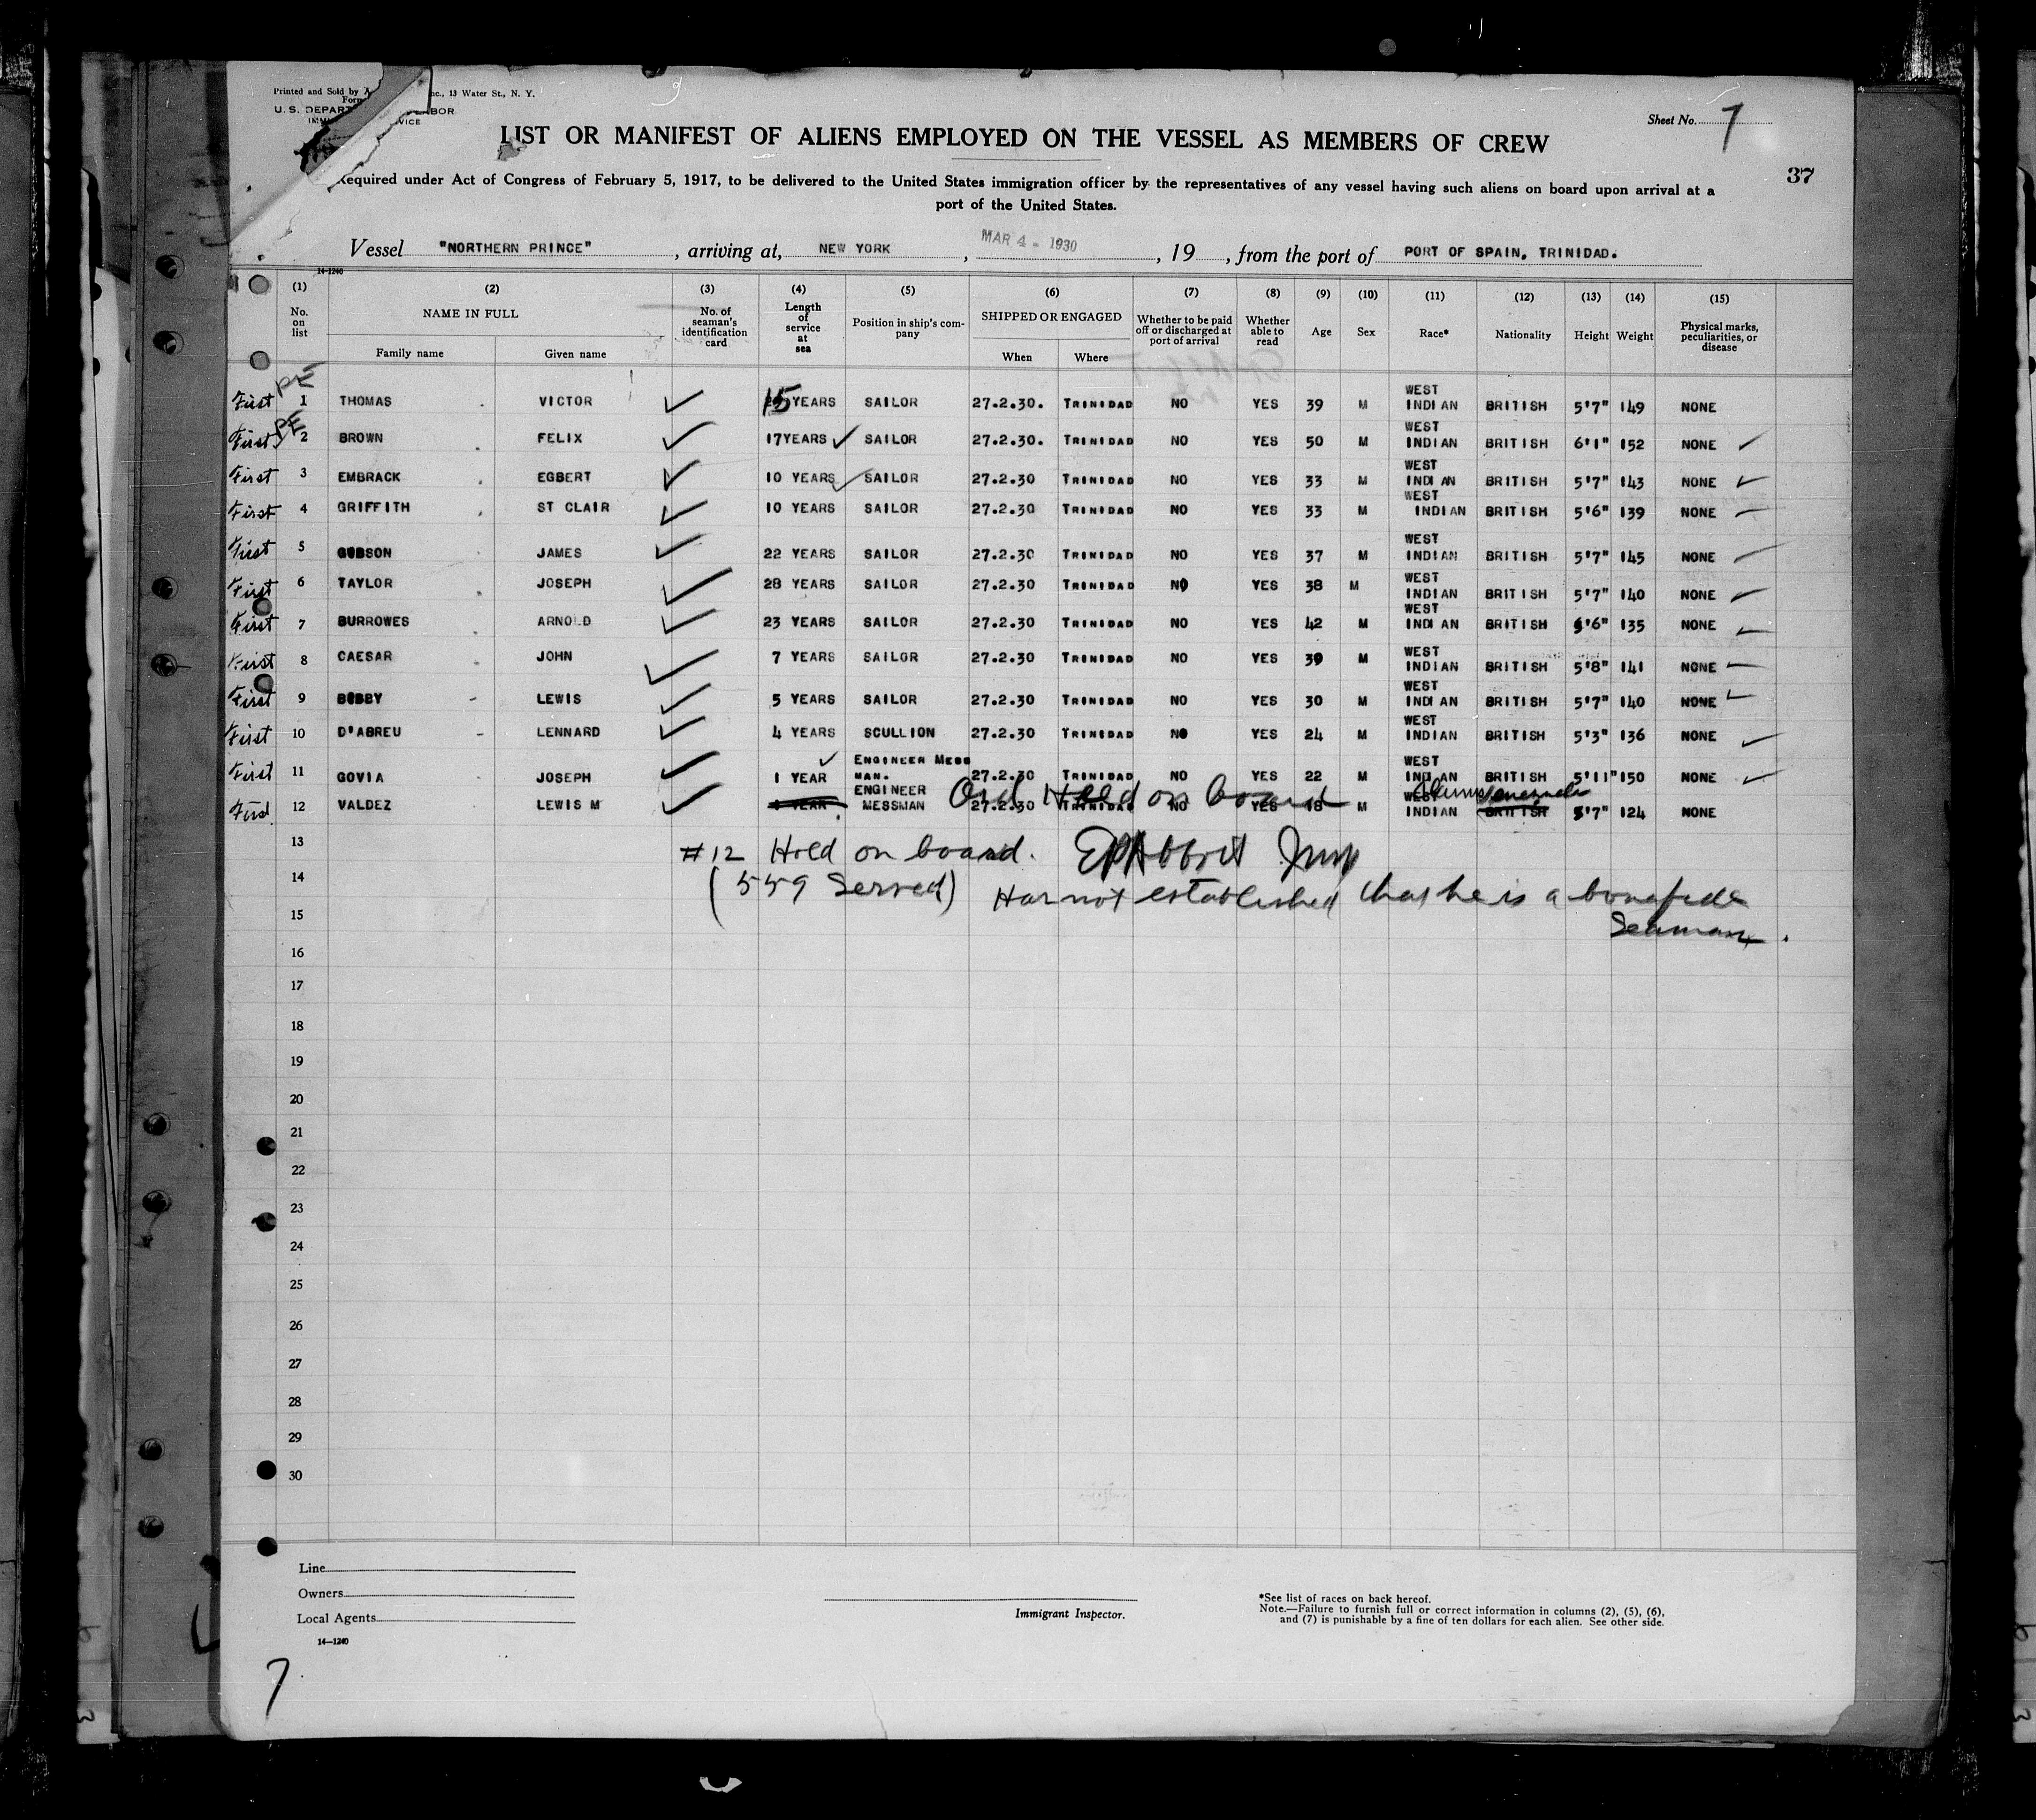 Printed and Sold by A nc., 13 Water St., N. Y.
Form
U. S. DEPART LABOR
IMM VICE
Sheet No. 7
LIST OR MANIFEST OF ALIENS EMPLOYED ON THE VESSEL AS MEMBERS OF CREW
37
Required under Act of Congress of February 5, 1917, to be delivered to the United States immigration officer by the representatives of any vessel having such aliens on board upon arrival at a
port of the United States.
Vessel "NORTHERN PRINCE", arriving at, NEW YORK, MAR 4 - 1930, 19, from the port of PORT OF SPAIN, TRINIDAD.
14-1240
(1) (2) (3) (4) (5) (6) (7) (8) (9) (10) (11) (12) (13) (14) (15)
No. on list NAME IN FULL No. of seaman's identification card Length of service at sea Position in ship's company SHIPPED OR ENGAGED Whether to be paid off or discharged at port of arrival Whether able to read Age Sex Race* Nationality Height Weight Physical marks, peculiarities, or disease
Family name Given name When Where
PE
First 1 THOMAS VICTOR ✓ 15 YEARS SAILOR 27.2.30. TRINIDAD NO YES 39 M WEST INDIAN BRITISH 5'7" 149 NONE
PE
First 2 BROWN FELIX ✓ 17YEARS ✓ SAILOR 27.2.30. TRINIDAD NO YES 50 M WEST INDIAN BRITISH 6'1" 152 NONE ✓
First 3 EMBRACK EGBERT ✓ 10 YEARS ✓ SAILOR 27.2.30 TRINIDAD NO YES 33 M WEST INDIAN BRITISH 5'7" 143 NONE ✓
First 4 GRIFFITH ST CLAIR ✓ 10 YEARS SAILOR 27.2.30 TRINIDAD NO YES 33 M WEST INDIAN BRITISH 5'6" 139 NONE
First 5 JAMES ✓ 22 YEARS SAILOR 27.2.30 TRINIDAD NO YES 37 M WEST INDIAN BRITISH 5'7" 145 NONE
First 6 TAYLOR JOSEPH ✓ 28 YEARS SAILOR 27.2.30 TRINIDAD NO YES 38 M WEST INDIAN BRITISH 5'7" 140 NONE ✓
First 7 BURROWES ARNOLD ✓ 23 YEARS SAILOR 27.2.30 TRINIDAD NO YES 42 M WEST INDIAN BRITISH 5'6" 135 NONE ✓
First 8 CAESAR JOHN ✓ 7 YEARS SAILOR 27.2.30 TRINIDAD NO YES 39 M WEST INDIAN BRITISH 5'8" 141 NONE ✓
First 9 BOBBY LEWIS ✓ 5 YEARS SAILOR 27.2.30 TRINIDAD NO YES 30 M WEST INDIAN BRITISH 5'7" 140 NONE ✓
First 10 D'ABREU LENNARD ✓ 4 YEARS SCULLION 27.2.30 TRINIDAD NO YES 24 M WEST INDIAN BRITISH 5'3" 136 NONE ✓
First 11 GOVIA JOSEPH ✓ 1 YEAR ✓ ENGINEER MESS MAN. 27.2.30 TRINIDAD NO YES 22 M WEST INDIAN BRITISH 5'11" 150 NONE ✓
Ord Held on board Venezuela
First 12 VALDEZ LEWIS M ✓ 1 YEAR ENGINEER MESSMAN 27.2.30 TRINIDAD NO YES 18 M WEST INDIAN BRITISH 5'7" 124 NONE
13 #12 Hold on board.
14 (559 Served) Has not established that he is a bonafide
15 Seaman.
16
17
18
19
20
21
22
23
24
25
26
27
28
29
30
Line
Owners
Local Agents
14—1240
Immigrant Inspector.
*See list of races on back hereof.
Note.—Failure to furnish full or correct information in columns (2), (5), (6),
and (7) is punishable by a fine of ten dollars for each alien. See other side.
7